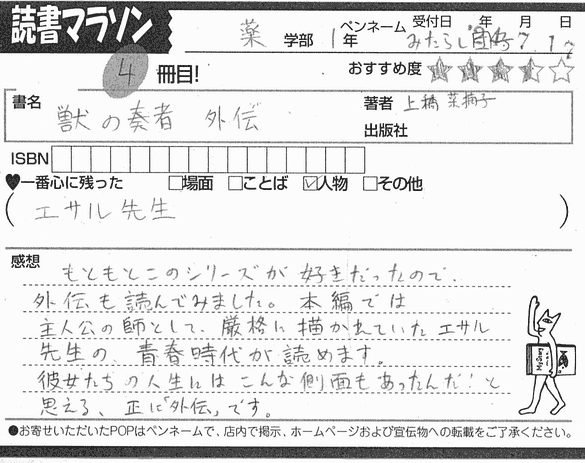 読書マラソン
薬 学部 1年 ペンネーム みたらし団子 受付日 年 7月 日
4 冊目!
おすすめ度 ★★★★☆
書名 獣の奏者 外伝
著者 上橋 菜穂子
出版社
ISBN
♥一番心に残った □場面 □ことば ☑人物 □その他
(エサル先生)
感想
もともとこのシリーズが好きだったので、
外伝も読んでみました。本編では
主人公の師として、厳格に描かれていたエサル
先生の、青春時代が読めます。
彼女たちの人生にはこんな側面もあったんだ!と
思える、正に「外伝」です。
●お寄せいただいたPOPはペンネームで、店内で掲示、ホームページおよび宣伝物への転載をご了承ください。